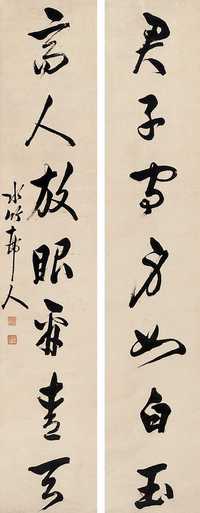 君子守身如白玉
高人放眼看青天
水竹邨人